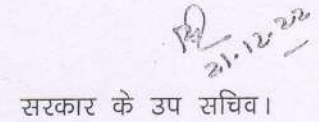 21.12.22
सरकार के उप सचिव।